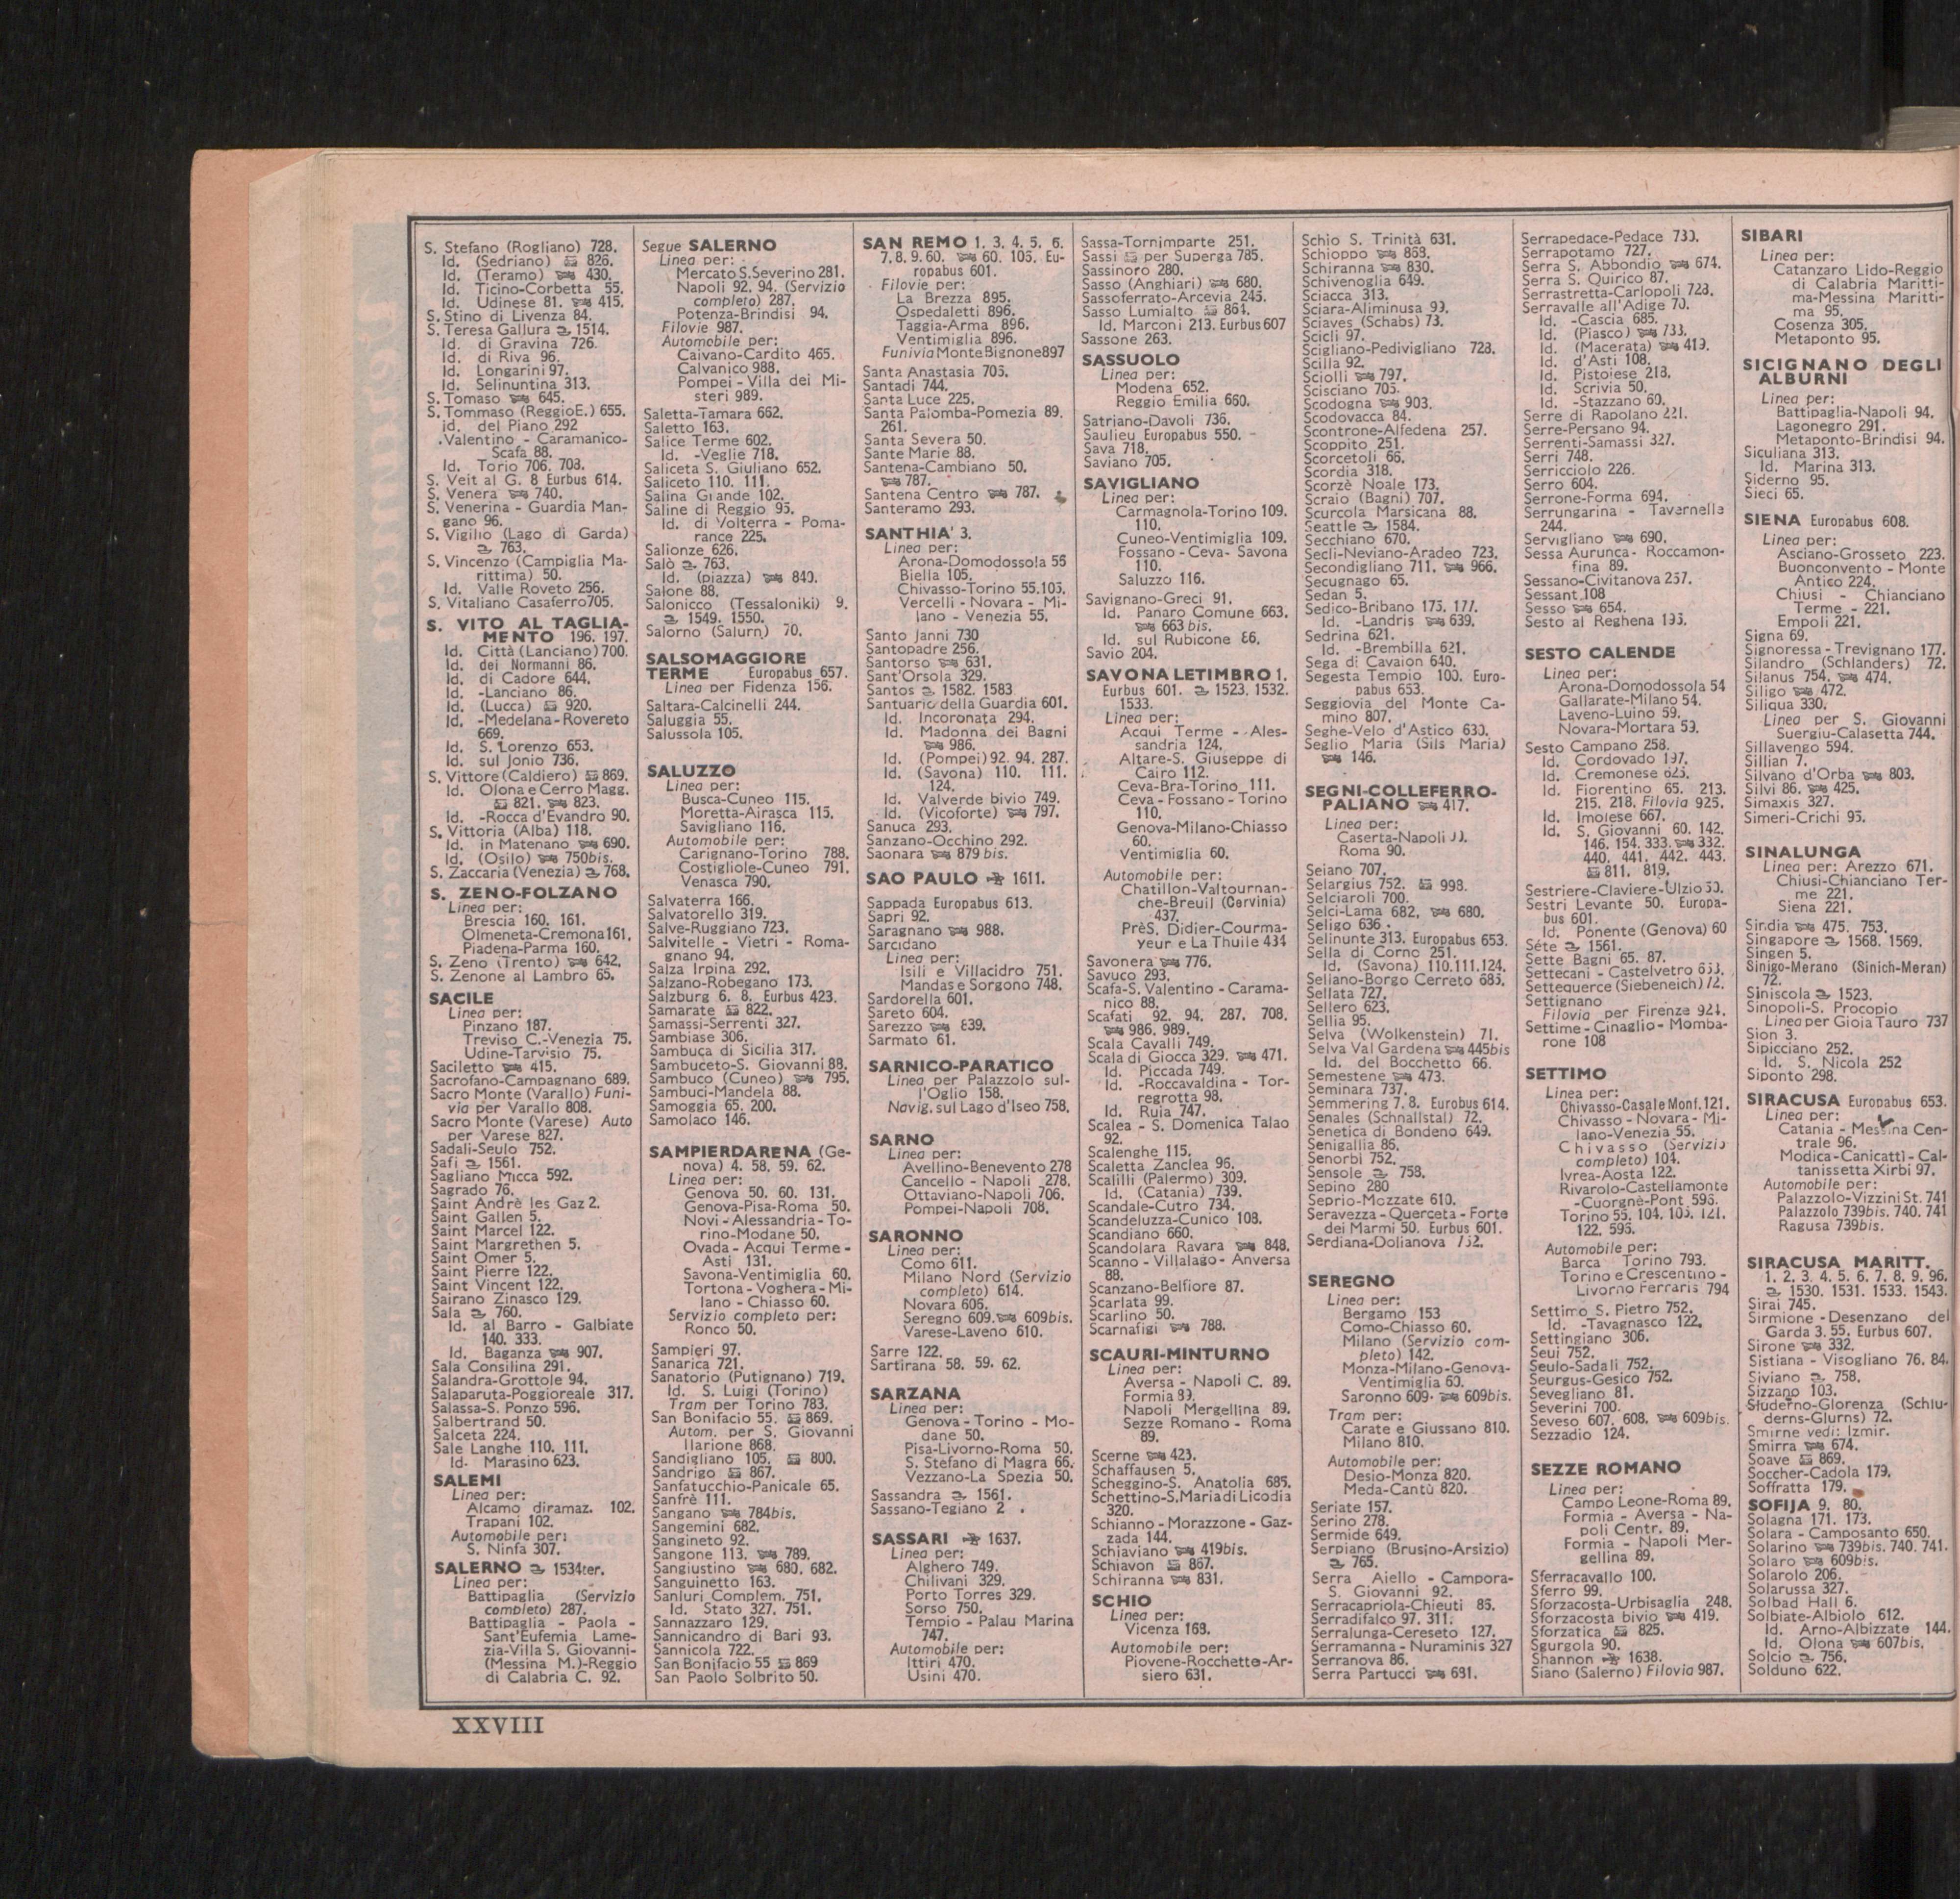 S. Stefano (Rogliano) 728.
Id. (Sedriano) 826.
Id. (Teramo) 430.
Id. Ticino-Corbetta 55.
Id. Udinese 81. 415.
S. Stino di Livenza 84.
S. Teresa Gallura 1514.
Id. di Gravina 726.
Id. di Riva 96.
Id. Longarini 97.
Id. Selinuntina 313.
S. Tomaso 645.
S. Tommaso (Reggio E.) 655.
id. del Piano 292
.Valentino - Caramanico-
Scafa 88.
Id. Torio 706. 708.
S. Veit al G. 8 Eurbus 614.
S. Venera 740.
S. Venerina - Guardia Man-
gano 96.
S. Vigilio (Lago di Garda)
763.
S. Vincenzo (Campiglia Ma-
rittima) 50.
Id. Valle Roveto 256.
S. Vitaliano Casaferro 705.
S. VITO AL TAGLIA-
MENTO 196. 197.
Id. Città (Lanciano) 700.
Id. dei Normanni 86.
Id. di Cadore 644.
Id. -Lanciano 86.
Id. (Lucca) 920.
Id. -Medelana-Rovereto
669.
Id. S. Lorenzo 653.
Id. sul Jonio 736.
S. Vittore (Caldiero) 869.
Id. Olona e Cerro Magg.
821. 823.
Id. -Rocca d'Evandro 90.
S. Vittoria (Alba) 118.
Id. in Matenano 690.
Id. (Osilo) 750bis.
S. Zaccaria (Venezia) 768.
S. ZENO-FOLZANO
Linea per:
Brescia 160. 161.
Olmeneta-Cremona 161.
Piadena-Parma 160.
S. Zeno (Trento) 642.
S. Zenone al Lambro 65.
SACILE
Linea per:
Pinzano 187.
Treviso C.-Venezia 75.
Udine-Tarvisio 75.
Saciletto 415.
Sacrofano-Campagnano 689.
Sacro Monte (Varallo) Funi-
via per Varallo 808.
Sacro Monte (Varese) Auto
per Varese 827.
Sadali-Seulo 752.
Safi 1561.
Sagliano Micca 592.
Sagrado 76.
Saint Andrè les Gaz 2.
Saint Gallen 5.
Saint Marcel 122.
Saint Margrethen 5.
Saint Omer 5.
Saint Pierre 122.
Saint Vincent 122.
Sairano Zinasco 129.
Sala 760.
Id. al Barro - Galbiate
140. 333.
Id. Baganza 907.
Sala Consilina 291.
Salandra-Grottole 94.
Salaparuta-Poggioreale 317.
Salassa-S. Ponzo 596.
Salbertrand 50.
Salceta 224.
Sale Langhe 110. 111.
Id. Marasino 623.
SALEMI
Linea per:
Alcamo diramaz. 102.
Trapani 102.
Automobile per:
S. Ninfa 307.
SALERNO 1534ter.
Linea per:
Battipaglia (Servizio
completo) 287.
Battipaglia - Paola -
Sant'Eufemia Lame-
zia-Villa S. Giovanni-
(Messina M.)-Reggio
di Calabria C. 92.
Segue SALERNO
Linea per:
Mercato S. Severino 281.
Napoli 92. 94. (Servizio
completo) 287.
Potenza-Brindisi 94.
Filovie 987.
Automobile per:
Caivano-Cardito 465.
Calvanico 988.
Pompei - Villa dei Mi-
steri 989.
Saletta-Tamara 662.
Saletto 163.
Salice Terme 602.
Id. -Veglie 718.
Saliceta S. Giuliano 652.
Saliceto 110. 111.
Salina Grande 102.
Saline di Reggio 95.
Id. di Volterra - Poma-
rance 225.
Salionze 626.
Salò 763.
Id. (piazza) 840.
Salone 88.
Salonicco (Tessaloniki) 9.
1549. 1550.
Salorno (Salurn) 70.
SALSOMAGGIORE
TERME Europabus 657.
Linea per Fidenza 156.
Saltara-Calcinelli 244.
Saluggia 55.
Salussola 105.
SALUZZO
Linea per:
Busca-Cuneo 115.
Moretta-Airasca 115.
Savigliano 116.
Automobile per:
Carignano-Torino 788.
Costigliole-Cuneo 791.
Venasca 790.
Salvaterra 166.
Salvatorello 319.
Salve-Ruggiano 723.
Salvitelle - Vietri - Roma-
gnano 94.
Salza Irpina 292.
Salzano-Robegano 173.
Salzburg 6. 8. Eurbus 423.
Samarate 822.
Samassi-Serrenti 327.
Sambiase 306.
Sambuca di Sicilia 317.
Sambuceto-S. Giovanni 88.
Sambuco (Cuneo) 795.
Sambuci-Mandela 88.
Samoggia 65. 200.
Samolaco 146.
SAMPIERDARENA (Ge-
nova) 4. 58. 59. 62.
Linea per:
Genova 50. 60. 131.
Genova-Pisa-Roma 50.
Novi - Alessandria - To-
rino-Modane 50.
Ovada - Acqui Terme -
Asti 131.
Savona-Ventimiglia 60.
Tortona - Voghera - Mi-
lano - Chiasso 60.
Servizio completo per:
Ronco 50.
Sampieri 97.
Sanarica 721.
Sanatorio (Putignano) 719.
Id. S. Luigi (Torino)
Tram per Torino 783.
San Bonifacio 55. 869.
Autom. per S. Giovanni
Ilarione 868.
Sandigliano 105. 800.
Sandrigo 867.
Sanfatucchio-Panicale 65.
Sanfrè 111.
Sangano 784bis.
Sangemini 682.
Sangineto 92.
Sangone 113. 789.
Sangiustino 680. 682.
Sanguinetto 163.
Sanluri Complem. 751.
Id. Stato 327. 751.
Sannazzaro 129.
Sannicandro di Bari 93.
Sannicola 722.
San Bonifacio 55 869
San Paolo Solbrito 50.
SAN REMO 1. 3. 4. 5. 6.
7. 8. 9. 60. 60. 105. Eu-
ropabus 601.
Filovie per:
La Brezza 895.
Ospedaletti 896.
Taggia-Arma 896.
Ventimiglia 896.
Funivia Monte Bignone 897
Santa Anastasia 705.
Santadi 744.
Santa Luce 225.
Santa Palomba-Pomezia 89.
261.
Santa Severa 50.
Sante Marie 88.
Santena-Cambiano 50.
787.
Santena Centro 787.
Santeramo 293.
SANTHIA' 3.
Linea per:
Arona-Domodossola 56
Biella 105.
Chivasso-Torino 55.105.
Vercelli - Novara - Mi-
lano - Venezia 55.
Santo Janni 730
Santopadre 256.
Santorso 631.
Sant'Orsola 329.
Santos 1582. 1583
Santuario della Guardia 601.
Id. Incoronata 294.
Id. Madonna dei Bagni
986.
Id. (Pompei) 92. 94. 287.
Id. (Savona) 110. 111.
124.
Id. Valverde bivio 749.
Id. (Vicoforte) 797.
Sanuca 293.
Sanzano-Occhino 292.
Saonara 879 bis.
SAO PAULO 1611.
Sappada Europabus 613.
Sapri 92.
Saragnano 988.
Sarcidano
Linea per:
Isili e Villacidro 751.
Mandas e Sorgono 748.
Sardorella 601.
Sareto 604.
Sarezzo 839.
Sarmato 61.
SARNICO-PARATICO
Linea per Palazzolo sul-
l'Oglio 158.
Navig. sul Lago d'Iseo 758.
SARNO
Linea per:
Avellino-Benevento 278
Cancello - Napoli 278.
Ottaviano-Napoli 706.
Pompei-Napoli 708.
SARONNO
Linea per:
Como 611.
Milano Nord (Servizio
completo) 614.
Novara 606.
Seregno 609. 609bis.
Varese-Laveno 610.
Sarre 122.
Sartirana 58. 59. 62.
SARZANA
Linea per:
Genova - Torino - Mo-
dane 50.
Pisa-Livorno-Roma 50.
S. Stefano di Magra 66.
Vezzano-La Spezia 50.
Sassandra 1561.
Sassano-Tegiano 2
SASSARI 1637.
Linea per:
Alghero 749.
Chilivani 329.
Porto Torres 329.
Sorso 750.
Tempio - Palau Marina
747.
Automobile per:
Ittiri 470.
Usini 470.
Sassa-Tornimparte 251.
Sassi per Superga 785.
Sassinoro 280.
Sasso (Anghiari) 680.
Sassoferrato-Arcevia 245.
Sasso Lumialto 864.
Id. Marconi 213. Eurbus 607
Sassone 263.
SASSUOLO
Linea per:
Modena 652.
Reggio Emilia 660.
Satriano-Davoli 736.
Saulieu Europabus 550.
Sava 718.
Saviano 705.
SAVIGLIANO
Linea per:
Carmagnola-Torino 109.
110.
Cuneo-Ventimiglia 109.
Fossano - Ceva - Savona
110.
Saluzzo 116.
Savignano-Greci 91.
Id. Panaro Comune 663.
663 bis.
Id. sul Rubicone 66.
Savio 204.
SAVONA LETIMBRO 1.
Eurbus 601. 1523. 1532.
1533.
Linea per:
Acqui Terme - Ales-
sandria 124.
Altare-S. Giuseppe di
Cairo 112.
Ceva-Bra-Torino 111.
Ceva - Fossano - Torino
110.
Genova-Milano-Chiasso
60.
Ventimiglia 60.
Automobile per:
Chatillon-Valtournan-
che-Breuil (Cervinia)
437.
PrèS. Didier-Courma-
yeur e La Thuile 434
Savonera 776.
Savuco 293.
Scafa-S. Valentino - Carama-
nico 88.
Scafati 92. 94. 287. 708.
986. 989.
Scala Cavalli 749.
Scala di Giocca 329. 471.
Id. Piccada 749.
Id. -Roccavaldina - Tor-
regrotta 98.
Id. Ruia 747.
Scalea - S. Domenica Talao
92.
Scalenghe 115.
Scaletta Zanclea 96.
Scalilli (Palermo) 309.
Id. (Catania) 739.
Scandale-Cutro 734.
Scandeluzza-Cunico 108.
Scandiano 660.
Scandolara Ravara 848.
Scanno - Villalago - Anversa
88.
Scanzano-Belfiore 87.
Scarlata 99.
Scarlino 50.
Scarnafigi 788.
SCAURI-MINTURNO
Linea per:
Aversa - Napoli C. 89.
Formia 89.
Napoli Mergellina 89.
Sezze Romano - Roma
89.
Scerne 423.
Schaffausen 5.
Scheggino-S. Anatolia 685.
Schettino-S. Maria di Licodia
320.
Schianno - Morazzone - Gaz-
zada 144.
Schiaviano 419bis.
Schiavon 867.
Schiranna 831.
SCHIO
Linea per:
Vicenza 169.
Automobile per:
Piovene-Rocchette-Ar-
siero 631.
Schio S. Trinità 631.
Schioppo 868.
Schiranna 830.
Schivenoglia 649.
Sciacca 313.
Sciara-Aliminusa 99.
Sciaves (Schabs) 73.
Scicli 97.
Scigliano-Pedivigliano 728.
Scilla 92.
Sciolli 797.
Scisciano 705.
Scodogna 903.
Scodovacca 84.
Scontrone-Alfedena 257.
Scoppito 251.
Scorcetoli 66.
Scordia 318.
Scorzè Noale 173.
Scraio (Bagni) 707.
Scurcola Marsicana 88.
Seattle 1584.
Secchiano 670.
Seclì-Neviano-Aradeo 723.
Secondigliano 711. 966.
Secugnago 65.
Sedan 5.
Sedico-Bribano 175. 177.
Id. -Landris 639.
Sedrina 621.
Id. -Brembilla 621.
Sega di Cavaion 640.
Segesta Tempio 100. Euro-
pabus 653.
Seggiovia del Monte Ca-
mino 807.
Seghe-Velo d'Astico 630.
Seglio Maria (Sils Maria)
146.
SEGNI-COLLEFERRO-
PALIANO 417.
Linea per:
Caserta-Napoli
Roma 90.
Seiano 707.
Selargius 752. 998.
Selciaroli 700.
Selci-Lama 682. 680.
Seligo 636.
Selinunte 313. Europabus 653.
Sella di Corno 251.
Id. (Savona) 110.111.124.
Sellano-Borgo Cerreto 685.
Sellata 727.
Sellero 623.
Sellia 95.
Selva (Wolkenstein) 71.
Selva Val Gardena 445bis
Id. del Bocchetto 66.
Semestene 473.
Seminara 737.
Semmering 7. 8. Eurobus 614.
Senales (Schnallstal) 72.
Senetica di Bondeno 649.
Senigallia 86.
Senorbì 752.
Sensole 758.
Sepino 280
Seprio-Mozzate 610.
Seravezza - Querceta - Forte
dei Marmi 50. Eurbus 601.
Serdiana-Dolianova 752.
SEREGNO
Linea per:
Bergamo 153
Como-Chiasso 60.
Milano (Servizio com-
pleto) 142.
Monza-Milano-Genova-
Ventimiglia 60.
Saronno 609. 609bis.
Tram per:
Carate e Giussano 810.
Milano 810.
Automobile per:
Desio-Monza 820.
Meda-Cantù 820.
Seriate 157.
Serino 278.
Sermide 649.
Serpiano (Brusino-Arsizio)
765.
Serra Aiello - Campora-
S. Giovanni 92.
Serracapriola-Chieuti 86.
Serradifalco 97. 311.
Serralunga-Cereseto 127.
Serramanna - Nuraminis 327
Serranova 86.
Serra Partucci 691.
Serrapedace-Pedace 730.
Serrapotamo 727.
Serra S. Abbondio 674.
Serra S. Quirico 87.
Serrastretta-Carlopoli 728.
Serravalle all'Adige 70.
Id. -Cascia 685.
Id. (Piasco) 733.
Id. (Macerata) 419.
Id. d'Asti 108.
Id. Pistoiese 218.
Id. Scrivia 50.
Id. -Stazzano 60.
Serre di Rapolano 221.
Serre-Persano 94.
Serrenti-Samassi 327.
Serri 748.
Serricciolo 226.
Serro 604.
Serrone-Forma 694.
Serrungarina - Tavernelle
244.
Servigliano 690.
Sessa Aurunca - Roccamon-
fina 89.
Sessano-Civitanova 257.
Sessant 108
Sesso 654.
Sesto al Reghena 195.
SESTO CALENDE
Linea per:
Arona-Domodossola 54
Gallarate-Milano 54.
Laveno-Luino 59.
Novara-Mortara 59.
Sesto Campano 258.
Id. Cordovado 197.
Id. Cremonese 625.
Id. Fiorentino 65. 213.
215. 218. Filovia 925.
Id. Imolese 667.
Id. S. Giovanni 60. 142.
146. 154. 333. 332.
440. 441. 442. 443.
811. 819.
Sestriere-Claviere-Ulzio 50.
Sestri Levante 50. Europa-
bus 601.
Id. Ponente (Genova) 60
Séte 1561.
Sette Bagni 65. 87.
Settecani - Castelvetro 653.
Settequerce (Siebeneich) 72.
Settignano
Filovia per Firenze 924.
Settime - Cinaglio - Momba-
rone 108
SETTIMO
Linea per:
Chivasso-Casale Monf. 121.
Chivasso - Novara - Mi-
lano-Venezia 55.
Chivasso (Servizio
completo) 104.
Ivrea-Aosta 122.
Rivarolo-Castellamonte
-Cuorgnè-Pont 596.
Torino 55. 104. 105. 121.
122. 596.
Automobile per:
Barca Torino 793.
Torino e Crescentino -
Livorno Ferraris 794
Settimo S. Pietro 752.
Id. -Tavagnasco 122.
Settingiano 306.
Seui 752.
Seulo-Sadali 752.
Seurgus-Gesico 752.
Sevegliano 81.
Severini 700.
Seveso 607. 608. 609bis.
Sezzadio 124.
SEZZE ROMANO
Linea per:
Campo Leone-Roma 89.
Formia - Aversa - Na-
poli Centr. 89.
Formia - Napoli Mer-
gellina 89.
Sferracavallo 100.
Sferro 99.
Sforzacosta-Urbisaglia 248.
Sforzacosta bivio 419.
Sforzatica 825.
Sgurgola 90.
Shannon 1638.
Siano (Salerno) Filovia 987.
SIBARI
Linea per:
Catanzaro Lido-Reggio
di Calabria Maritti-
ma-Messina Maritti-
ma 95.
Cosenza 305.
Metaponto 95.
SICIGNANO DEGLI
ALBURNI
Linea per:
Battipaglia-Napoli 94.
Lagonegro 291.
Metaponto-Brindisi 94.
Siculiana 313.
Id. Marina 313.
Siderno 95.
Sieci 65.
SIENA Europabus 608.
Linea per:
Asciano-Grosseto 223.
Buonconvento - Monte
Antico 224.
Chiusi - Chianciano
Terme - 221.
Empoli 221.
Signa 69.
Signoressa-Trevignano 177.
Silandro (Schlanders) 72.
Silanus 754. 474.
Siligo 472.
Siliqua 330.
Linea per S. Giovanni
Suergiu-Calasetta 744.
Sillavengo 594.
Sillian 7.
Silvano d'Orba 803.
Silvi 86. 425.
Simaxis 327.
Simeri-Crichi 95.
SINALUNGA
Linea per: Arezzo 671.
Chiusi-Chianciano Ter-
me 221.
Siena 221.
Sindia 475. 753.
Singapore 1568. 1569.
Singen 5.
Sinigo-Merano (Sinich-Meran)
72.
Siniscola 1523.
Sinopoli-S. Procopio
Linea per Gioia Tauro 737
Sion 3.
Sipicciano 252.
Id. S. Nicola 252
Siponto 298.
SIRACUSA Europabus 653.
Linea per:
Catania - Messina Cen-
trale 96.
Modica-Canicattì - Cal-
tanissetta Xirbi 97.
Automobile per:
Palazzolo-Vizzini St. 741
Palazzolo 739bis. 740. 741
Ragusa 739bis.
SIRACUSA MARITT.
1. 2. 3. 4. 5. 6. 7. 8. 9. 96.
1530. 1531. 1533. 1543.
Sirai 745.
Sirmione - Desenzano del
Garda 3. 55. Eurbus 607.
Sirone 332.
Sistiana - Visogliano 76. 84.
Siviano 758.
Sizzano 103.
Sluderno-Glorenza (Schlu-
derns-Glurns) 72.
Smirne vedi: Izmir.
Smirra 674.
Soave 869.
Soccher-Cadola 179.
Soffratta 179.
SOFIJA 9. 80.
Solagna 171. 173.
Solara - Camposanto 650.
Solarino 739bis. 740. 741.
Solaro 609bis.
Solarolo 206.
Solarussa 327.
Solbad Hall 6.
Solbiate-Albiolo 612.
Id. Arno-Albizzate 144.
Id. Olona 607bis.
Solcio 756.
Solduno 622.
XXVIII